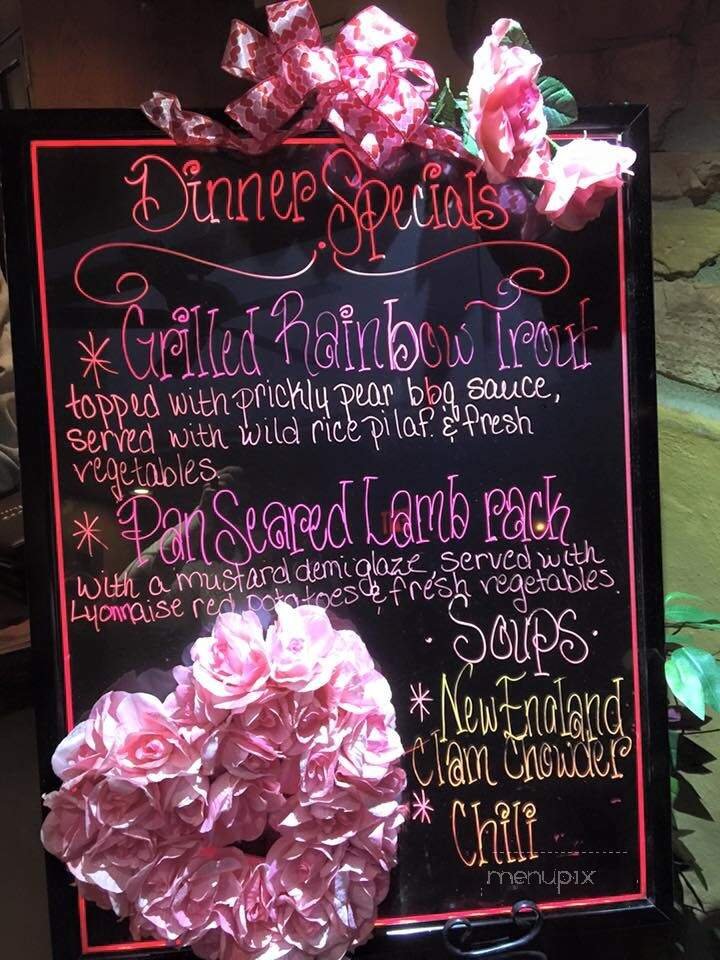 Dinner Specials
* Grilled Rainbow Trout
topped with prickly pear bbq sauce,
served with wild rice pilaf & fresh
vegetables
* Pan Seared Lamb rack
with a mustard demi glaze, served with
Lyonnaise red potatoes & fresh vegetables.
· Soups ·
* New England
Clam Chowder
* Chili
menupix